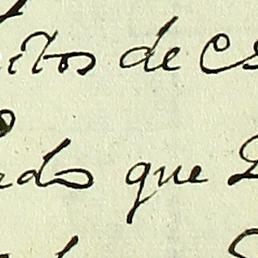 itos de es
edos que